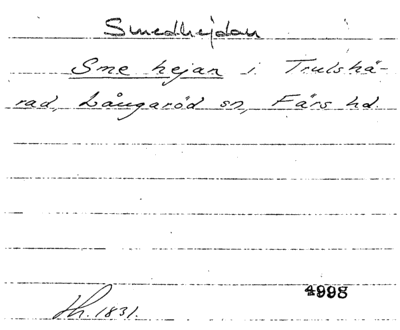 Smedhejdan
Sme hejan i Trulshä-
rad, Långaröd sn, Färs hd
4998
Lh. 1831.